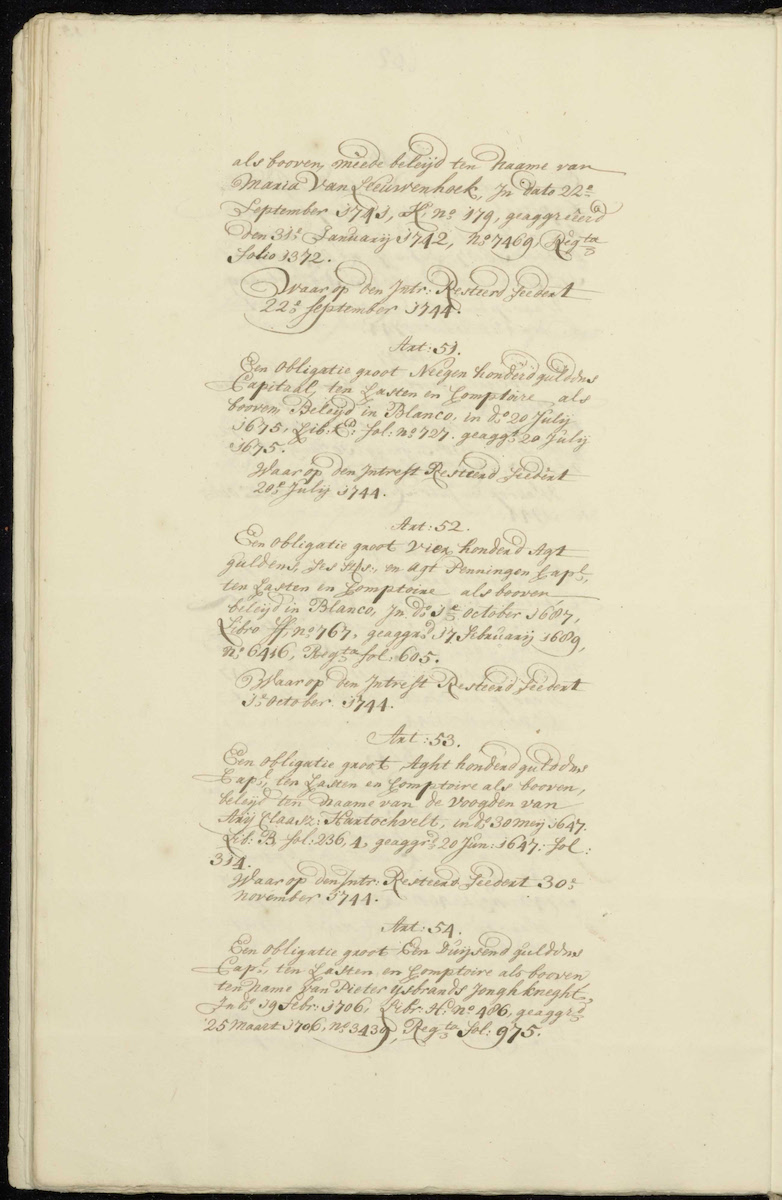 als booven, meede beleijd ten Naame van
Maria Van Leeuwenhoek, In dato 22e
September 1741, H, no 179, geaggreerd
den 31e Januarij 1742, No 7469, Regta
folio 1372.
Waar op den Intr: Resteerd seedert
22e September 1744.
Art: 51.
Een Obligatie groot Neegen honderd guldens
Capitaal, ten Lasten en Comptoire als
booven, Beleijd in Blanco, in do 20 Julij
1675, Lib: E: fol: no 727. geaggt 20 Julij
1675.
Waar op den Intrest Resteerd seedert
20e Julij 1744.
Art: 52.
Een Obligatie groot Vier honderd Agt
guldens, ses sts:, en Agt Penningen Capl,
ten Lasten en Comptoire als booven
beleijd in Blanco, In do 1e October 1687,
Libro ff, no 767, geaggrd 17 Februarij 1689,
no 6416, Regta fol: 605.
Waar op den Intrest Resteerd seedert
1e October 1744.
Art: 53.
Een Obligatie groot Aght honderd guldens
Capl, ten Lasten en Comptoire als booven,
beleijd ten Naame van de Vrogden van
Arij Claasz: Hartochvelt, in do 30 Meij 1647.
Lib: B fol: 236, 4, geaggrd 20 Jun: 1647: fol:
314.
Waar op den Intr: Resteerd seedert 30e
November 1744.
Art: 54.
Een Obligatie groot Een Duijsend guldens
Capl, ten Lasten, en Comptoire als booven
ten name van Pieter ijsbrands Jonghkneght,
In do 19 Febr: 1706, Libr: H: no 486, geaggrd
25 Maart 1706, no 3439, Regta fol: 975.